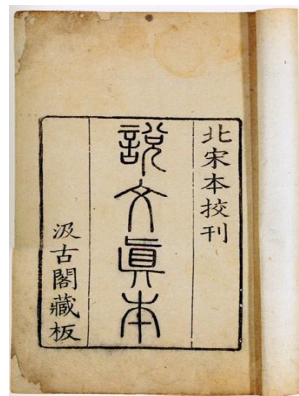 北宋本挍刊
說文眞本
汲古閣藏板